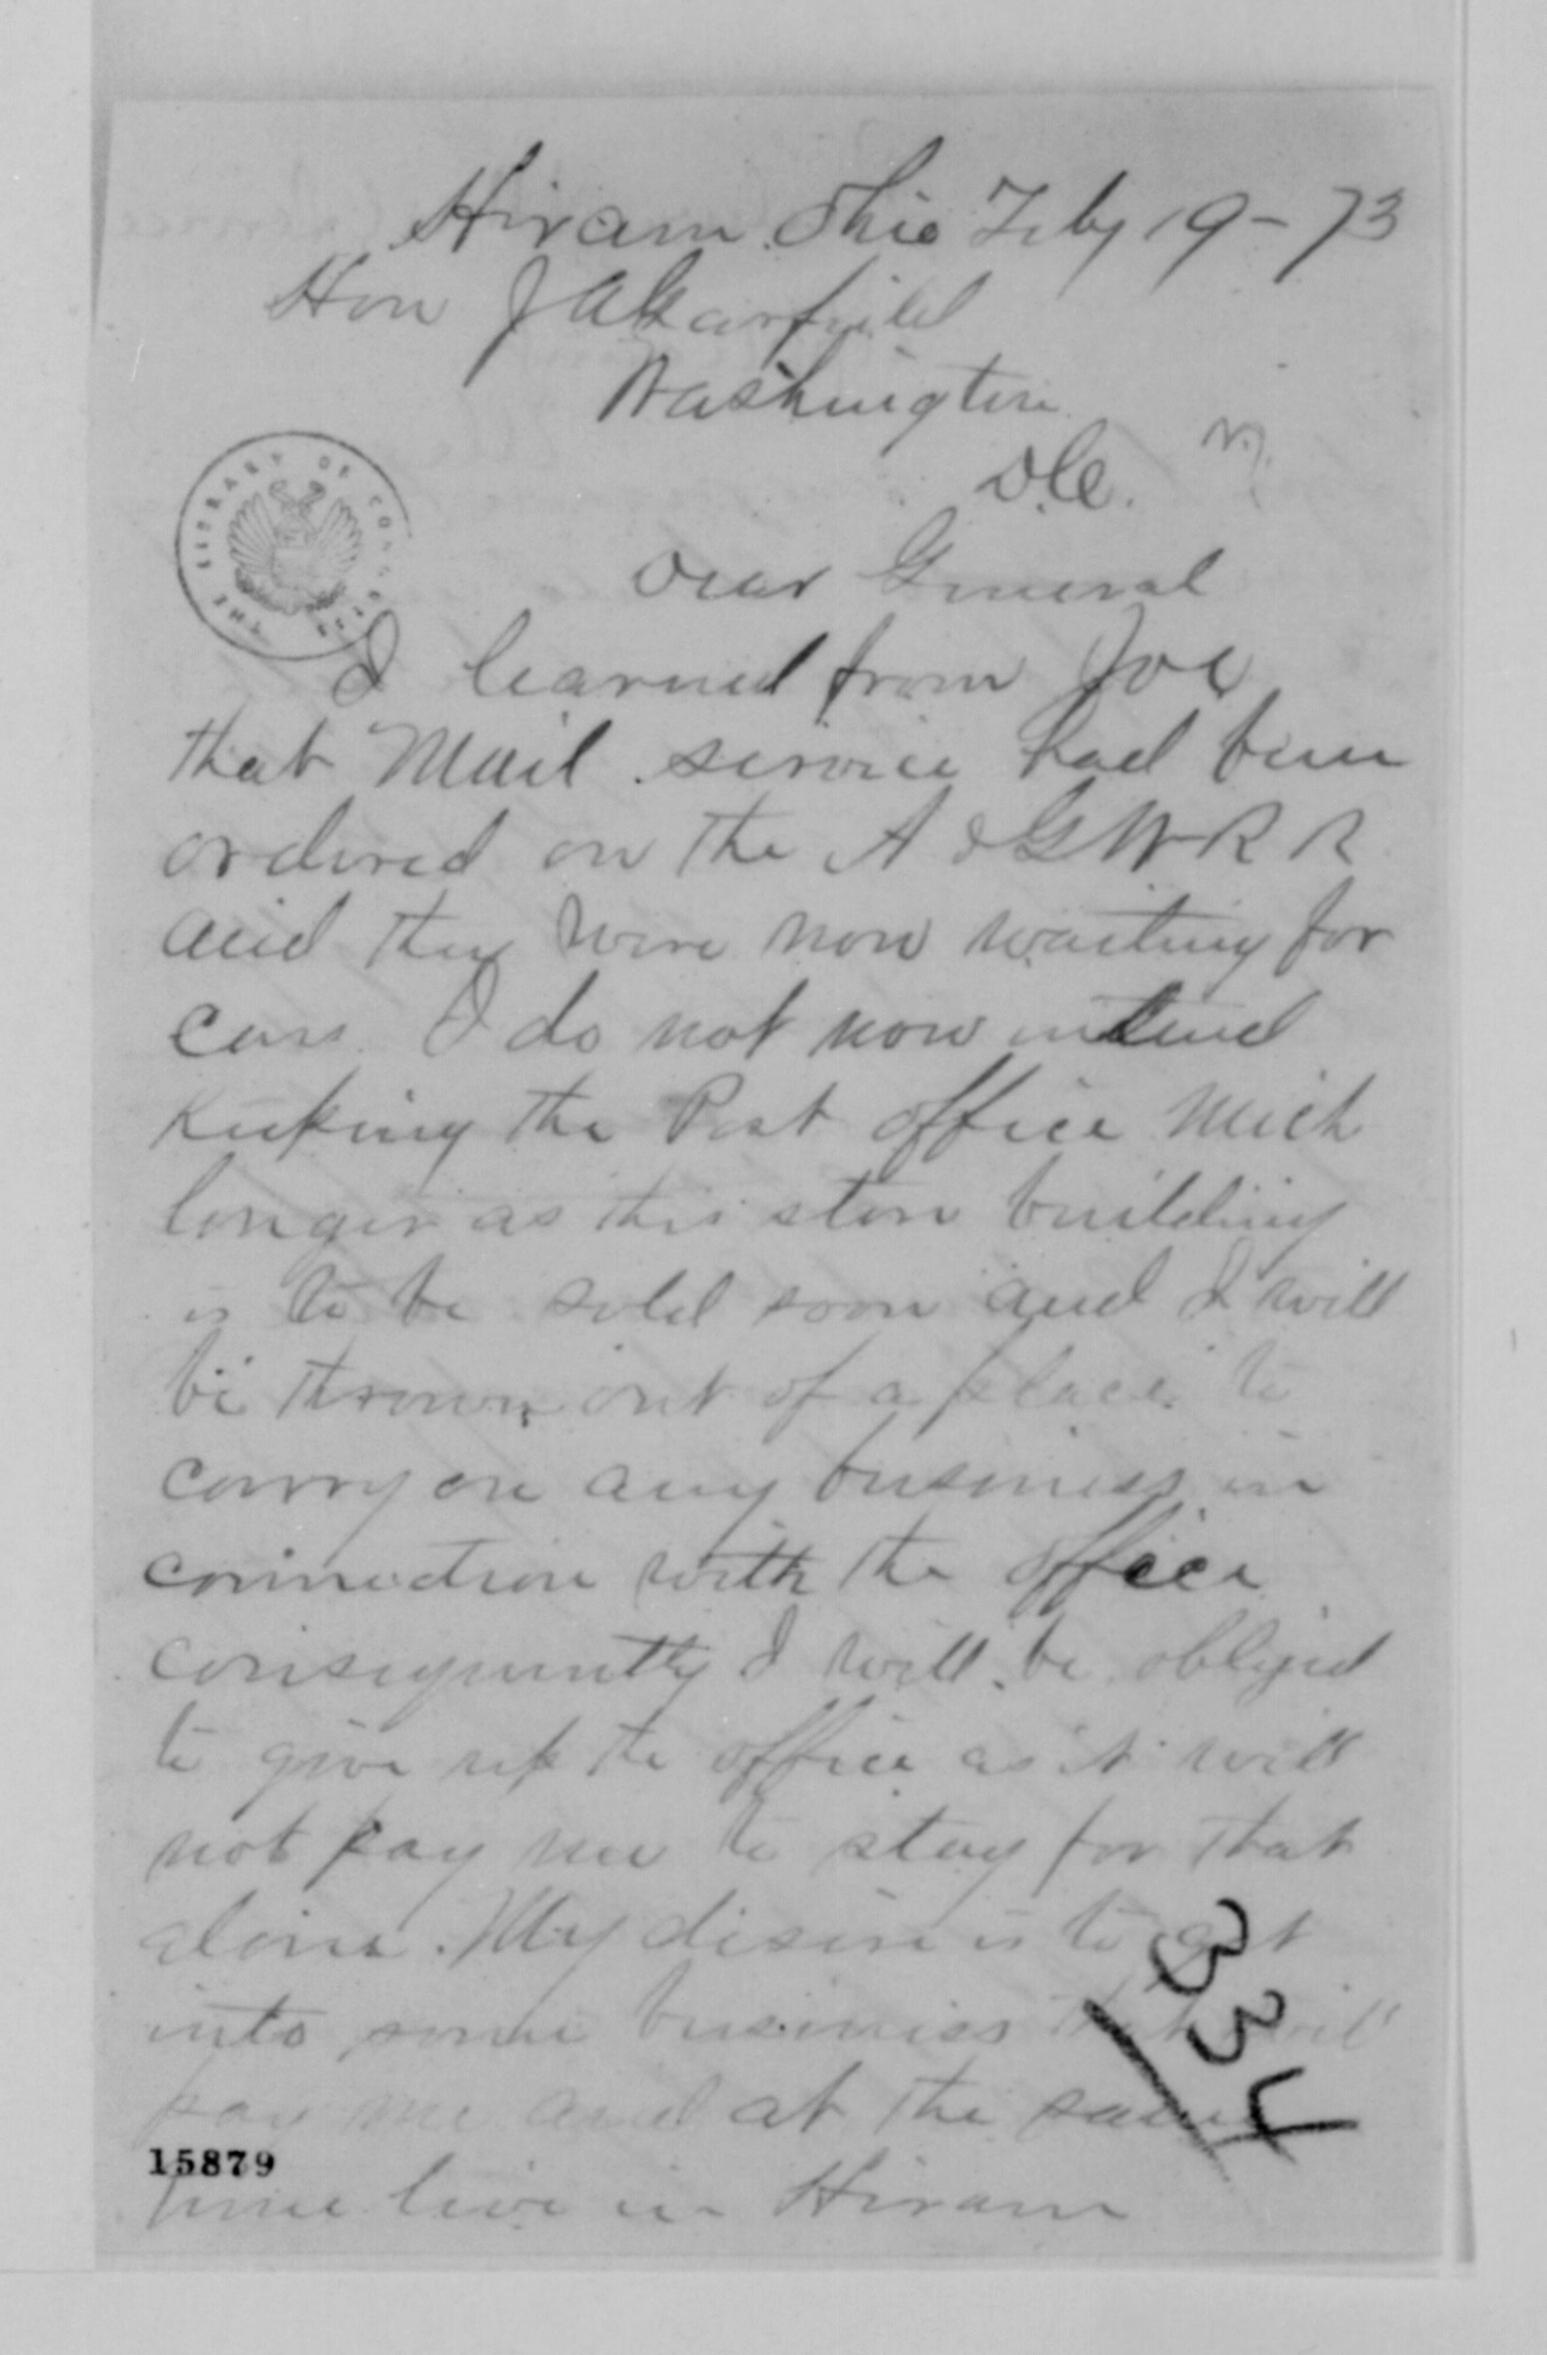 Hiram Ohio Feby 19-73
Hon J A Garfield
Washington
D.C.
THE LIBRARY OF CONGRESS
Dear General
I learned from Joe
that Mail service had been
ordered on the A & G W R R
and they were now waiting for
cars. I do not now intend
keeping the Post office much
longer as this store building
is to be sold soon and I will
be thrown out of a place to
carry on any business in
connection with the office
consequently I will be obliged
to give up the office as it will
not pay me to stay for that
alone. My desire is to get
into some business that will
pay me and at the same
time live in Hiram
334
15879